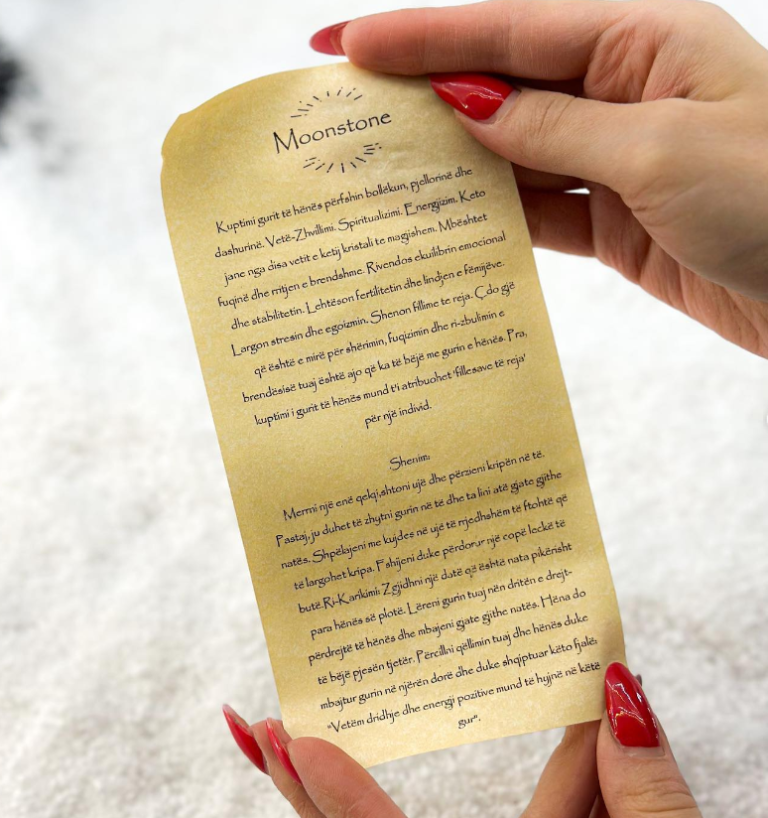 Moonstone
Kuptimi gurit të hënës përfshin bollëkun, pjellorinë dhe
dashurinë. Vetë-Zhvillimi. Spiritualizimi. Energjizim. Keto
jane nga disa vetit e ketij kristali te magjishem. Mbështet
fuqinë dhe rritjen e brendshme. Rivendos ekuilibrin emocional
dhe stabilitetin. Lehtëson fertilitetin dhe lindjen e fëmijëve.
Largon stresin dhe egoizmin. Shenon fillime te reja. Çdo gjë
që është e mirë për shërimin, fuqizimin dhe ri-zbulimin e
brendësisë tuaj është ajo që ka të bëjë me gurin e hënës. Pra,
kuptimi i gurit të hënës mund t'i atribuohet 'fillesave të reja'
për një individ.
Shenim:
Merrni një enë qelqi,shtoni ujë dhe përzieni kripën në të.
Pastaj, ju duhet të zhytni gurin në të dhe ta lini atë gjate gjithe
natës. Shpëlajeni me kujdes në ujë të rrjedhshëm të ftohtë që
të largohet kripa. Fshijeni duke përdorur një copë leckë të
butë.Ri-Karikimi: Zgjidhni një datë që është nata pikërisht
para hënës së plotë. Lëreni gurin tuaj nën dritën e drejt-
përdrejtë të hënës dhe mbajeni gjate gjithe natës. Hëna do
të bëjë pjesën tjetër. Përcillni qëllimin tuaj dhe hënës duke
mbajtur gurin në njërën dorë dhe duke shqiptuar këto fjalë:
"Vetëm dridhje dhe energji pozitive mund të hyjnë në këtë
gur".